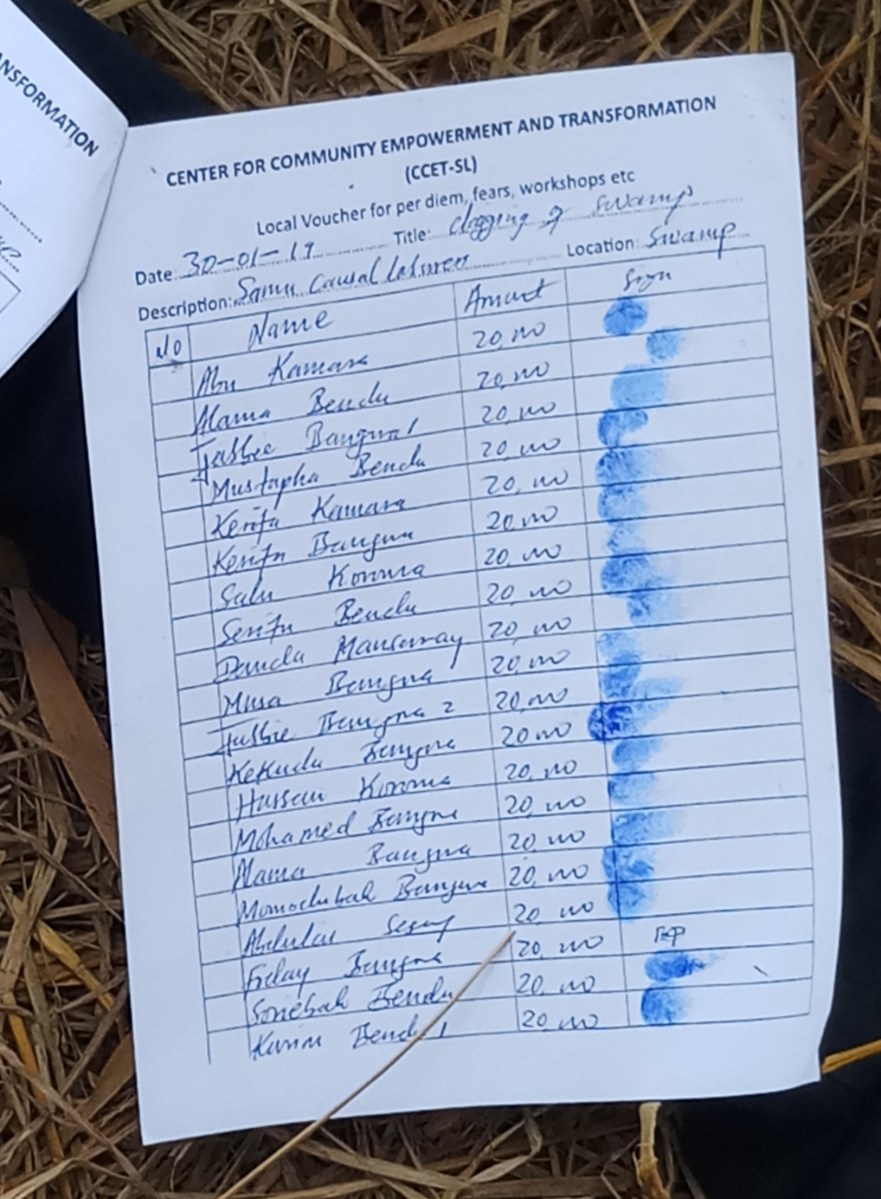 NSFORMATION
CENTER FOR COMMUNITY EMPOWERMENT AND TRANSFORMATION
(CCET-SL)
Local Voucher for per diem, fears, workshops etc
Date: 30-01-19 Title: clogging of swamp
Description: Samu Causal Labourers Location: Swamp
No Name Amount Sign
Abu Kamara 20,000
Alama Bendu 20,000
Falbie Bangura 1 20,000
Mustapha Bendu 20,000
Kerifa Kamara 20,000
Kerifa Bangura 20,000
Salu Koroma 20,000
Serifu Bendu 20,000
Dauda Mansaray 20,000
Musa Bangura 20,000
Falbie Bangura 2 20,000
Kekuda Bangura 20,000
Hussein Koroma 20,000
Mohamed Bangura 20,000
Alama Bangura 20,000
Momodubah Bangura 20,000
Abdulai Sesay 20,000
Bangura 20,000
Soriebah Bendu 20,000
Bendu 1 20,000